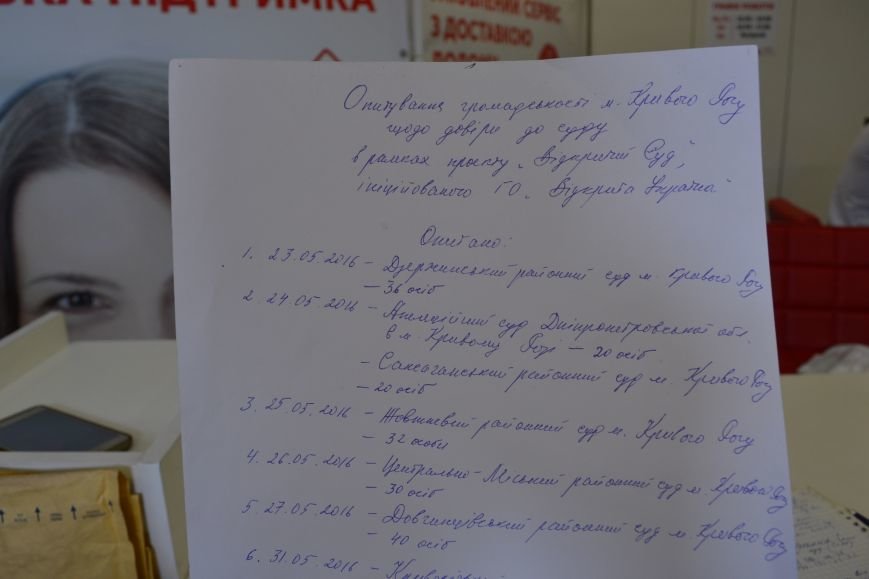 ПІДТРИМКА
СЕРВІС
З ДОСТАВКОЮ
Опитування громадськості м. Кривого Рогу
щодо довіри до суду
в рамках проєкту „Відкритий Суд",
ініційованого ГО „Відкрита Україна"
Опитано:
1. 23.05.2016 – Дзержинський районний суд м. Кривого Рогу
– 36 осіб
2. 24.05.2016 – Апеляційний суд Дніпропетровської обл.
в м. Кривому Розі – 20 осіб
– Саксаганський районний суд м. Кривого Рогу
– 20 осіб
3. 25.05.2016 – Жовтневий районний суд м. Кривого Рогу
– 32 особи
4. 26.05.2016 – Центрально-Міський районний суд м. Кривого Рогу
– 30 осіб
5. 27.05.2016 – Довгинцівський районний суд м. Кривого Рогу
– 40 осіб
6. 31.05.2016 –